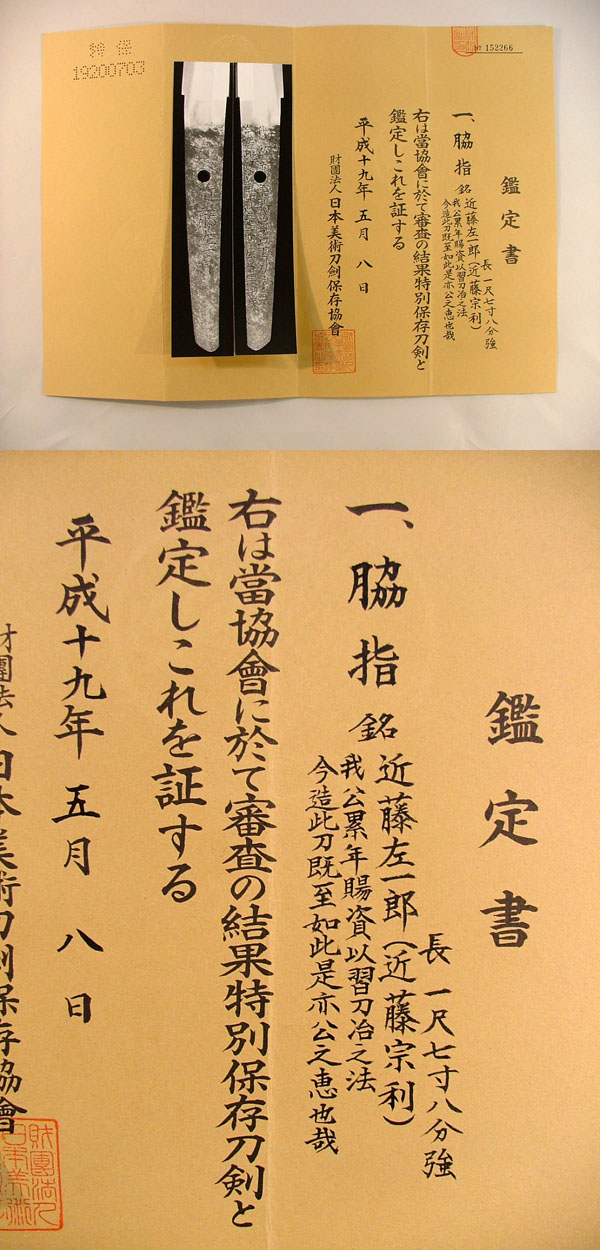 特保
19200703
№ 152266
鑑定書
一、脇指
長一尺七寸八分強
銘 近藤左一郎(近藤宗利)
我公累年賜資以習刀冶之法
今造此刀既至如此是亦公之恵也哉
右は當協會に於て審査の結果特別保存刀剣と
鑑定しこれを証する
平成十九年 五月 八日
財團法人 日本美術刀剣保存協會
鑑定書
長一尺七寸八分強
一、脇指 銘 近藤左一郎(近藤宗利)
我公累年賜資以習刀冶之法
今造此刀既至如此是亦公之恵也哉
右は當協會に於て審査の結果特別保存刀剣と
鑑定しこれを証する
平成十九年 五月 八日
財團法人 日本美術刀剣保存協會